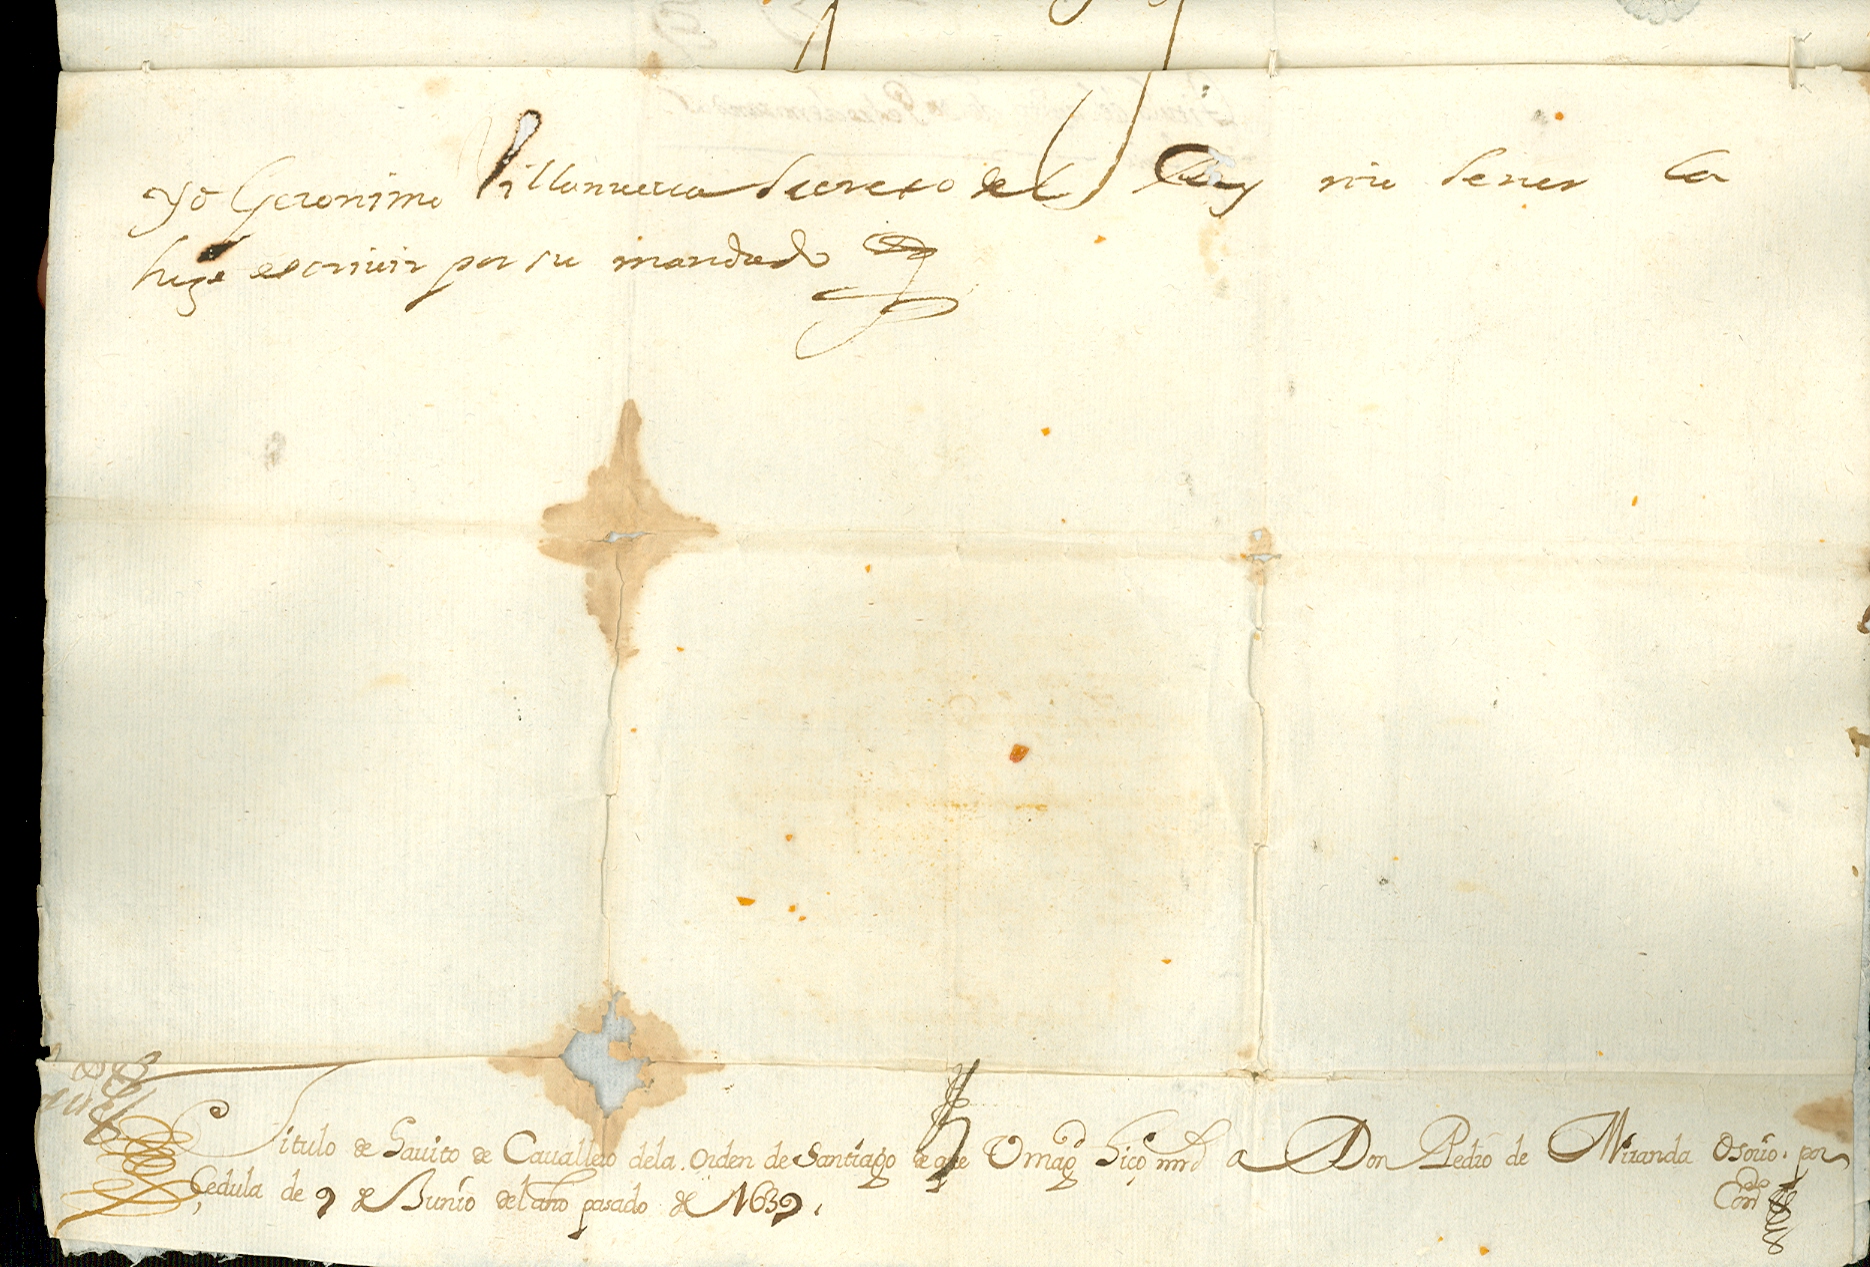 Yo Geronimo Villanueva Secreto del Rey mio Senor la
hize escriuir por su mandado
Titulo de Hauito de Cauallero dela Orden de Santiago de que Vmagd hiço mrd a Don Pedro de Miranda Osorio. por
Çedula de 9 de Junio del año pasado de 1639.